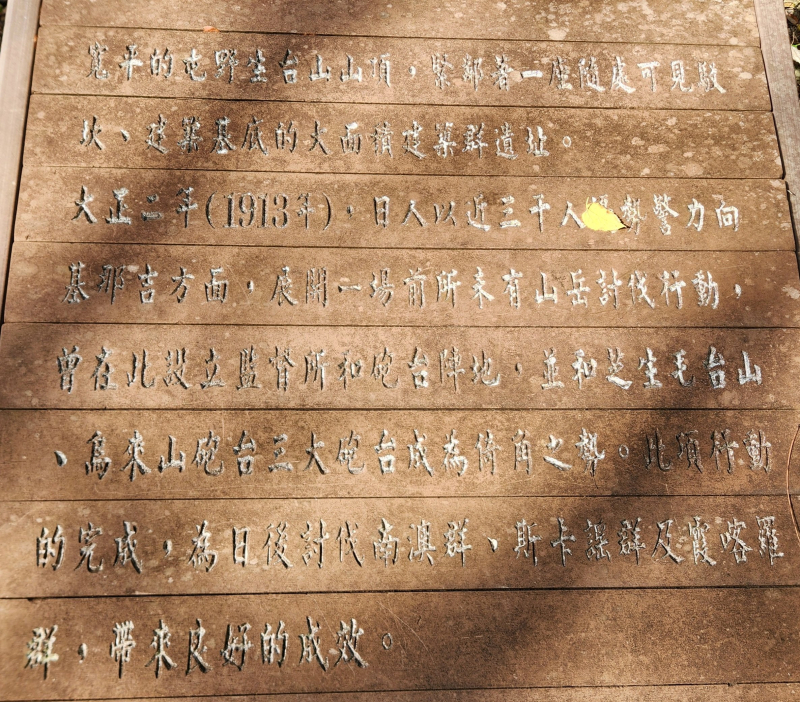 寬平的屯野生台山山頂，緊鄰著一座隨處可見駁
坎、建築基底的大面積建築群遺址。
大正二年(1913年)，日人以近三千人 勢警力向
基那吉方面，展開一場前所未有山岳討伐行動，
曾在此設立監督所和砲台陣地，並和芝生毛台山
、烏來山砲台三大砲台成為倚角之勢。此項行動
的完成，為日後討伐南澳群、斯卡謠群及霞喀羅
群，帶來良好的成效。